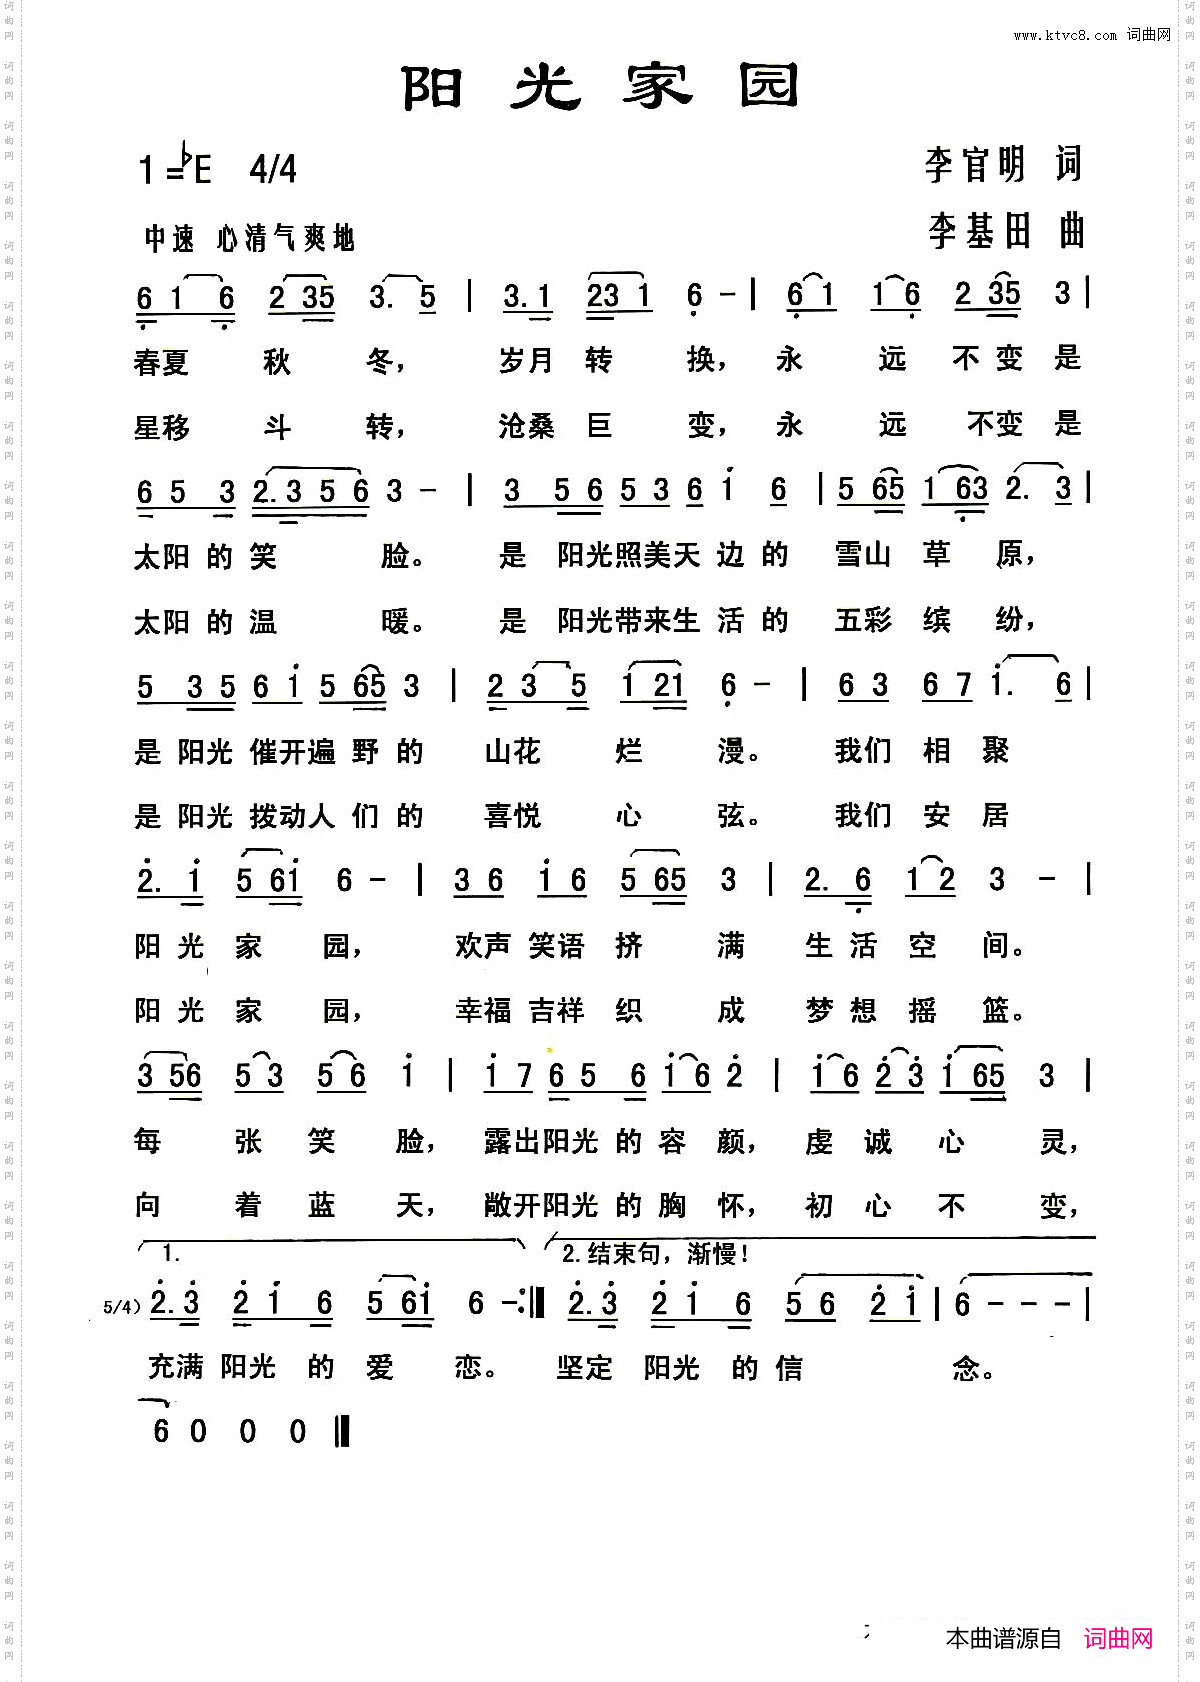 www.ktvc8.com 词曲网
阳光家园
1=♭E 4/4
李官明 词
中速 心清气爽地
李基田 曲
6 1 6 2 35 3. 5 | 3.1 23 1 6 - | 6 1 1 6 2 35 3 |
春夏 秋 冬， 岁月 转 换， 永 远 不 变 是
星移 斗 转， 沧桑 巨 变， 永 远 不变 是
6 5 3 2.3 5 6 3 - | 3 5 6 5 3 6 1 6 | 5 65 1 63 2. 3 |
太阳 的 笑 脸。 是 阳光照美天 边 的 雪山 草 原，
太阳 的 温 暖。 是 阳光带来生 活 的 五彩 缤 纷，
5 3 5 6 1 5 65 3 | 2 3 5 1 21 6 - | 6 3 6 7 1. 6 |
是 阳光 催开遍 野 的 山花 烂 漫。 我们 相 聚
是 阳光 拨动人 们 的 喜悦 心 弦。 我们 安 居
2. 1 5 61 6 - | 3 6 1 6 5 65 3 | 2. 6 1 2 3 - |
阳 光 家 园， 欢声 笑语 挤 满 生 活 空 间。
阳 光 家 园， 幸福 吉祥 织 成 梦 想 摇 篮。
3 56 5 3 5 6 1 | 1 7 6 5 6 1 6 2 | 1 6 2 3 1 65 3 |
每 张 笑 脸， 露出阳光 的 容 颜， 虔 诚 心 灵，
向 着 蓝 天， 敞开阳光 的 胸 怀， 初 心 不 变，
1. 2.结束句，渐慢！
5/4) 2.3 2 1 6 5 61 6 - :‖ 2.3 2 1 6 5 6 2 1 | 6 - - - |
充满 阳光 的 爱 恋。 坚定 阳光 的 信 念。
6 0 0 0 ‖
本曲谱源自 词曲网